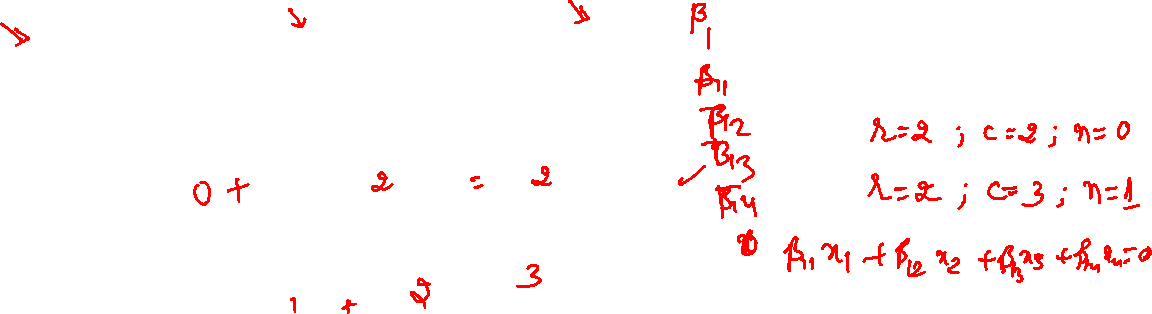 β1
β11
β12
β13
β14
r=2 ; c=2 ; n=0
0+ 2 = 2
r=2 ; c=3 ; n=1
β11 x1 + β12 x2 + β13 x3 + β14 x4=0
1 + 2 3